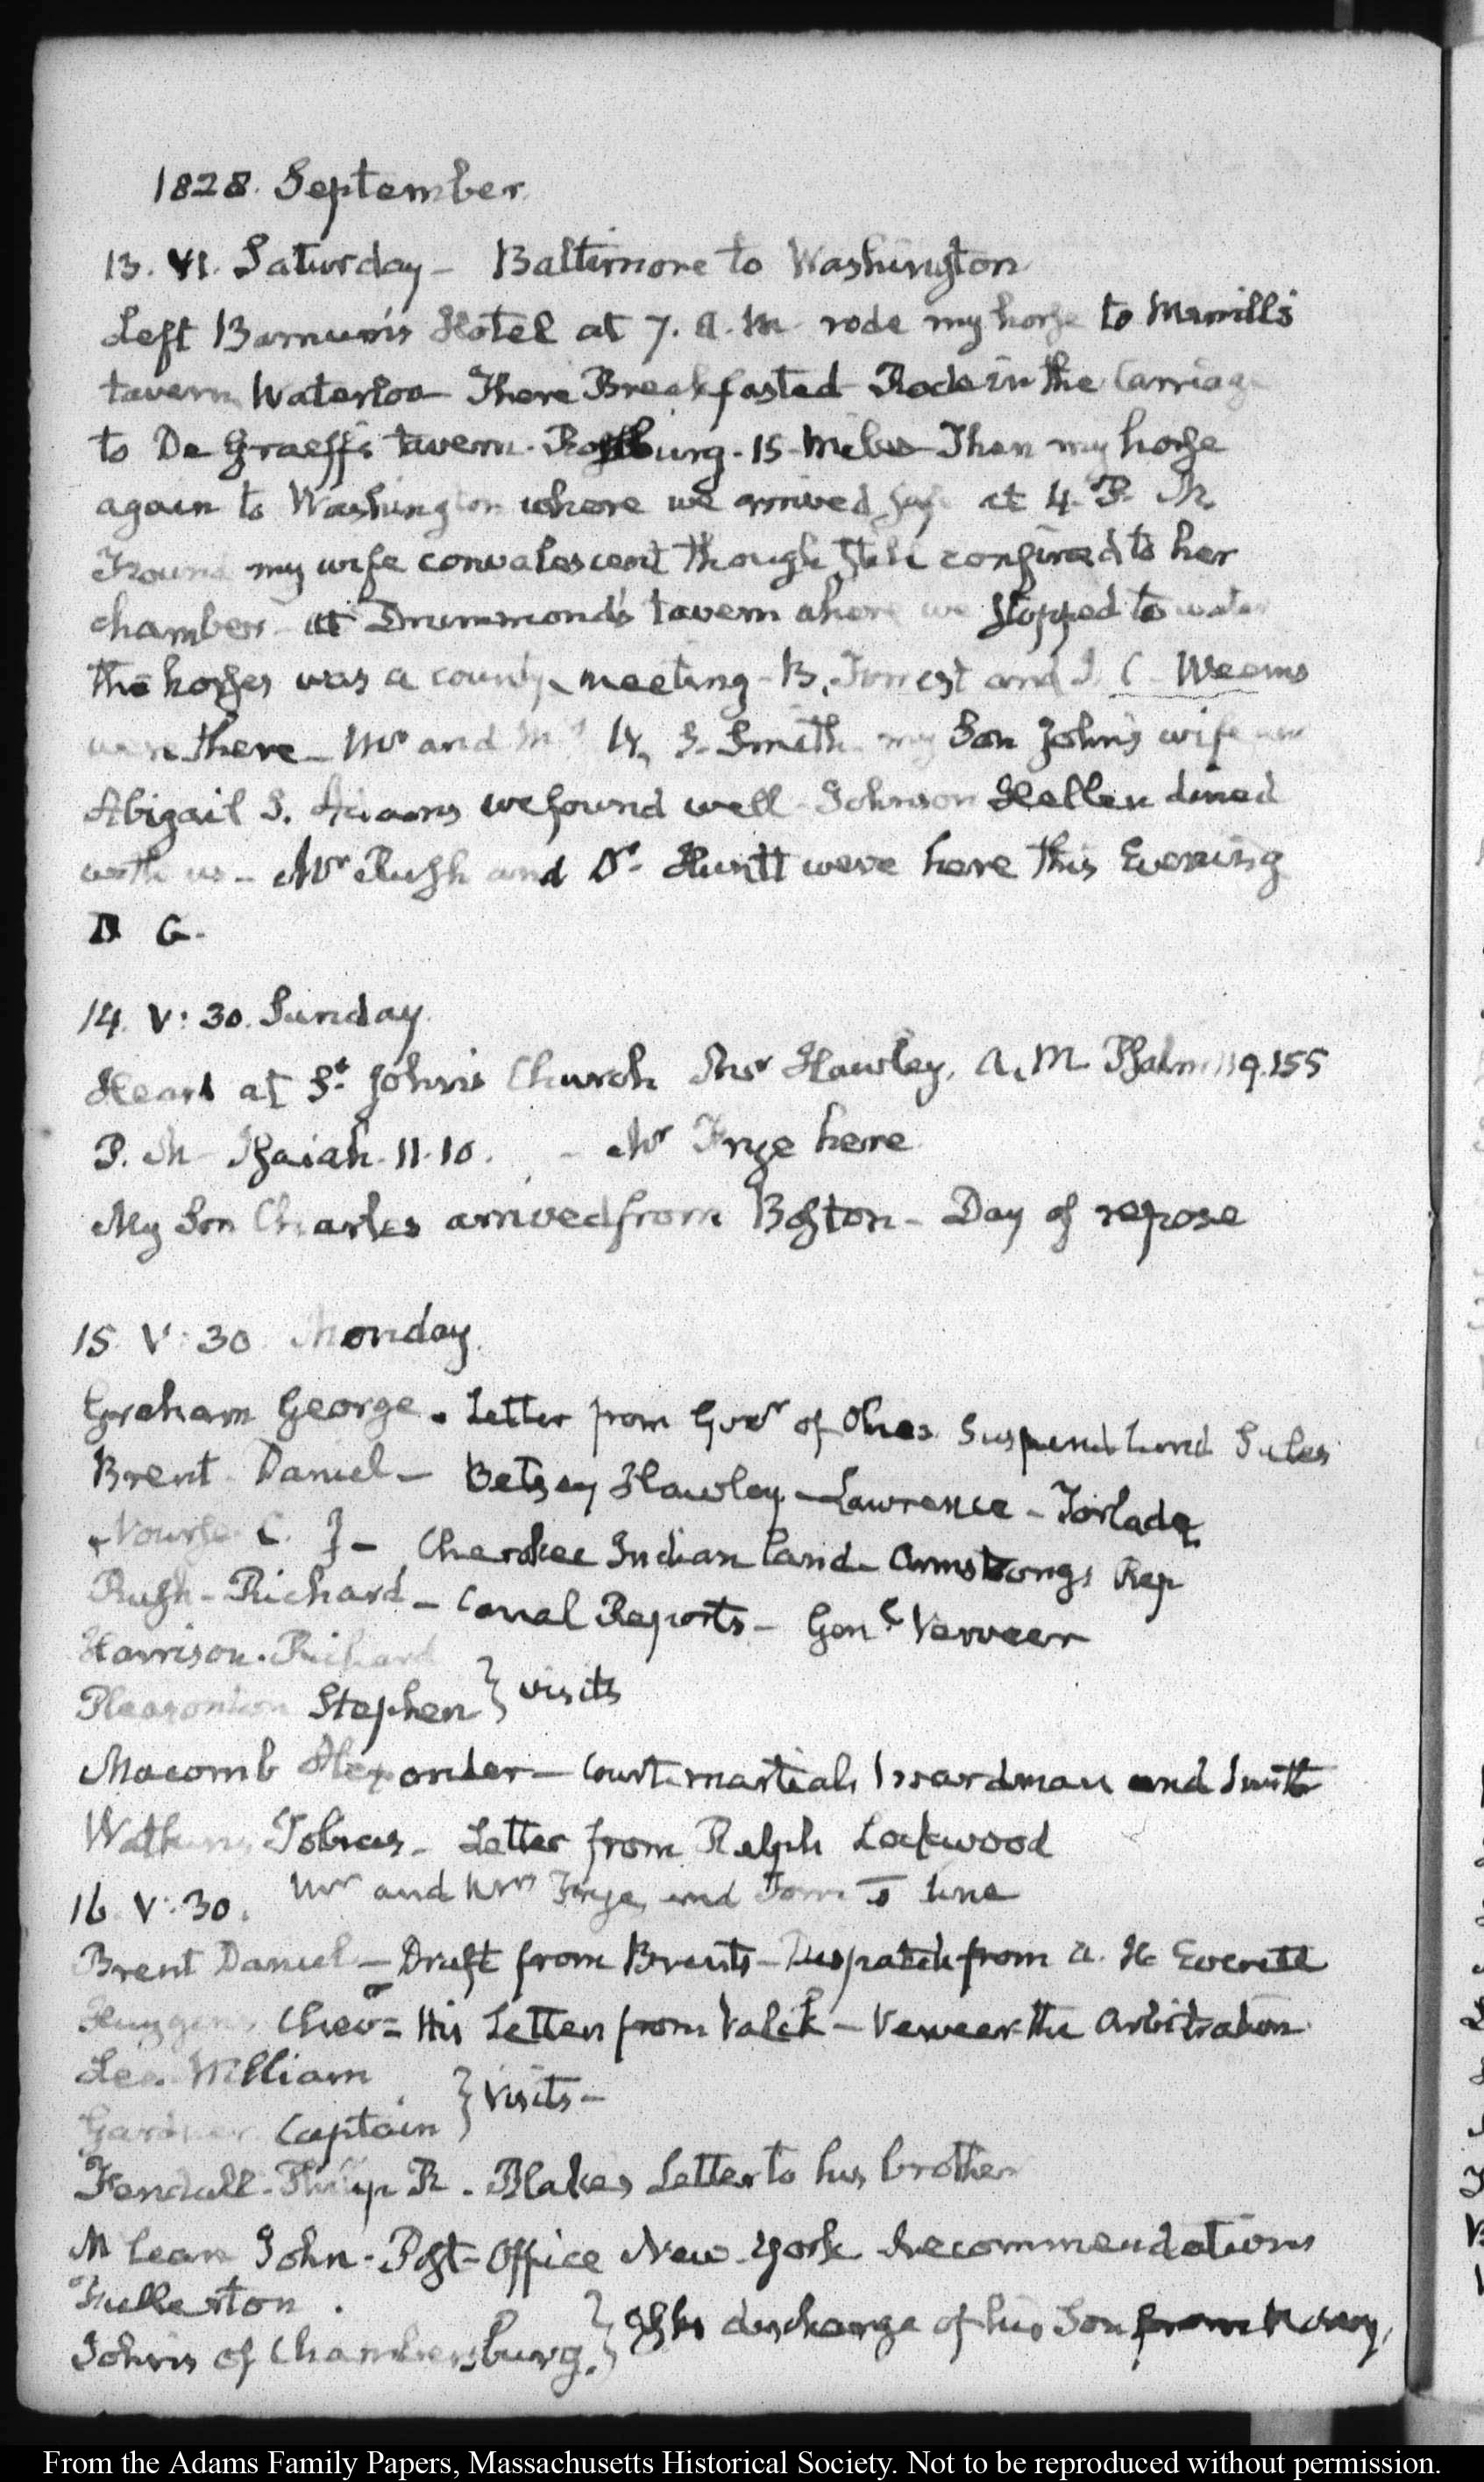 1828. September.
13. VI. Saturday – Baltimore to Washington
Left Barnum's Hotel at 7. A. M. rode my horse to Merrill's
tavern Waterloo – There Breakfasted – Rode in the Carriage
to De Graeff's tavern. Rossburg. 15 Miles – Then my horse
again to Washington where we arrived safe at 4. P. M.
Found my wife convalescent though still confined to her
chamber – at Drummond's tavern where we stopped to water
the horses was a county meeting – B. Forrest and J. C. Weems
were there – Mr and Mrs W. S. Smith my Son John's wife and
Abigail S. Adams we found well – Johnson Hellen dined
with us – Mr Rush and Dr Huntt were here this Evening
D G.
14. V: 30. Sunday.
Heard at St John's Church Mr Hawley, A. M. Psalm 119.155
P. M – Isaiah. 11. 10. – Mr Frye here
My Son Charles arrived from Boston – Day of repose
15. V: 30. Monday.
Graham George. Letter from Govr of Ohio Suspend Land Sales
Brent Daniel – Betsey Hawley – Lawrence – Torlade
Nourse C. J – Cherokee Indian land – Armstrongs Rep
Rush – Richard – Canal Reports – Genl Verveer
Harrison. Richard
Pleasonton Stephen } visits
Macomb Alexander – Court martials Boardman and Smith
Watkins Tobias – Letter from Ralph Lockwood
16. V: 30. Mr and Mrs Frye and Tom to dine
Brent Daniel – Draft from Brent's – Despatch from A. H. Everett
Huygens Chevr – His Letter from Valck – Verveer the Arbitration.
Lee. William
Gardner Captain } Visits –
Fendall – Philip R. Blake's Letter to his brother
McLean John – Post-Office New-York Recommendations
Fullerton.
Johns of Chambersburg. } discharge of his Son from Navy.
From the Adams Family Papers, Massachusetts Historical Society. Not to be reproduced without permission.